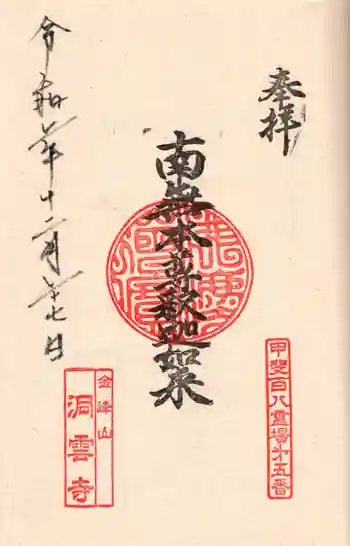 奉拝
甲斐百八霊場第五番
南無本尊釈迦如来
金峰山
洞雲寺
令和六年十二月廿七日